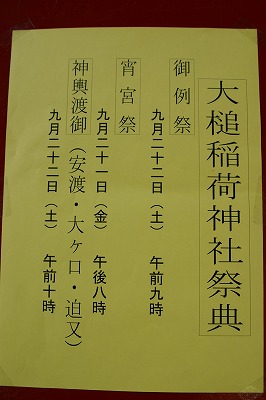 大槌稲荷神社祭典
御例祭
九月二十二日（土）　午前九時
宵宮祭
九月二十一日（金）　午後八時
神輿渡御（安渡・大ケ口・迫又）
九月二十二日（土）　午前十時